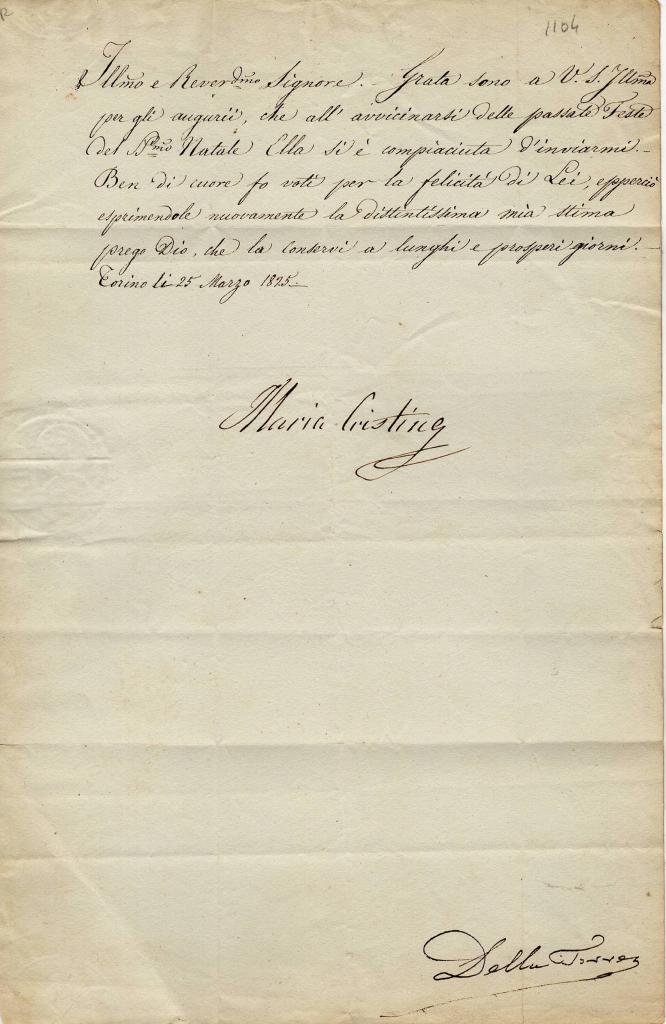 1104
Illmo e Reverdmo Signore. Grata sono a V. S. Illma
per gli augurii, che all' avvicinarsi delle passate Feste
del SSmo Natale Ella si è compiaciuta d'inviarmi.
Ben di cuore fo voti per la felicità di Lei, epperciò
esprimendole nuovamente la distintissima mia stima
prego Dio, che la conservi a lunghi e prosperi giorni.
Torino li 25 Marzo 1825.
Maria Cristina
Della Torre